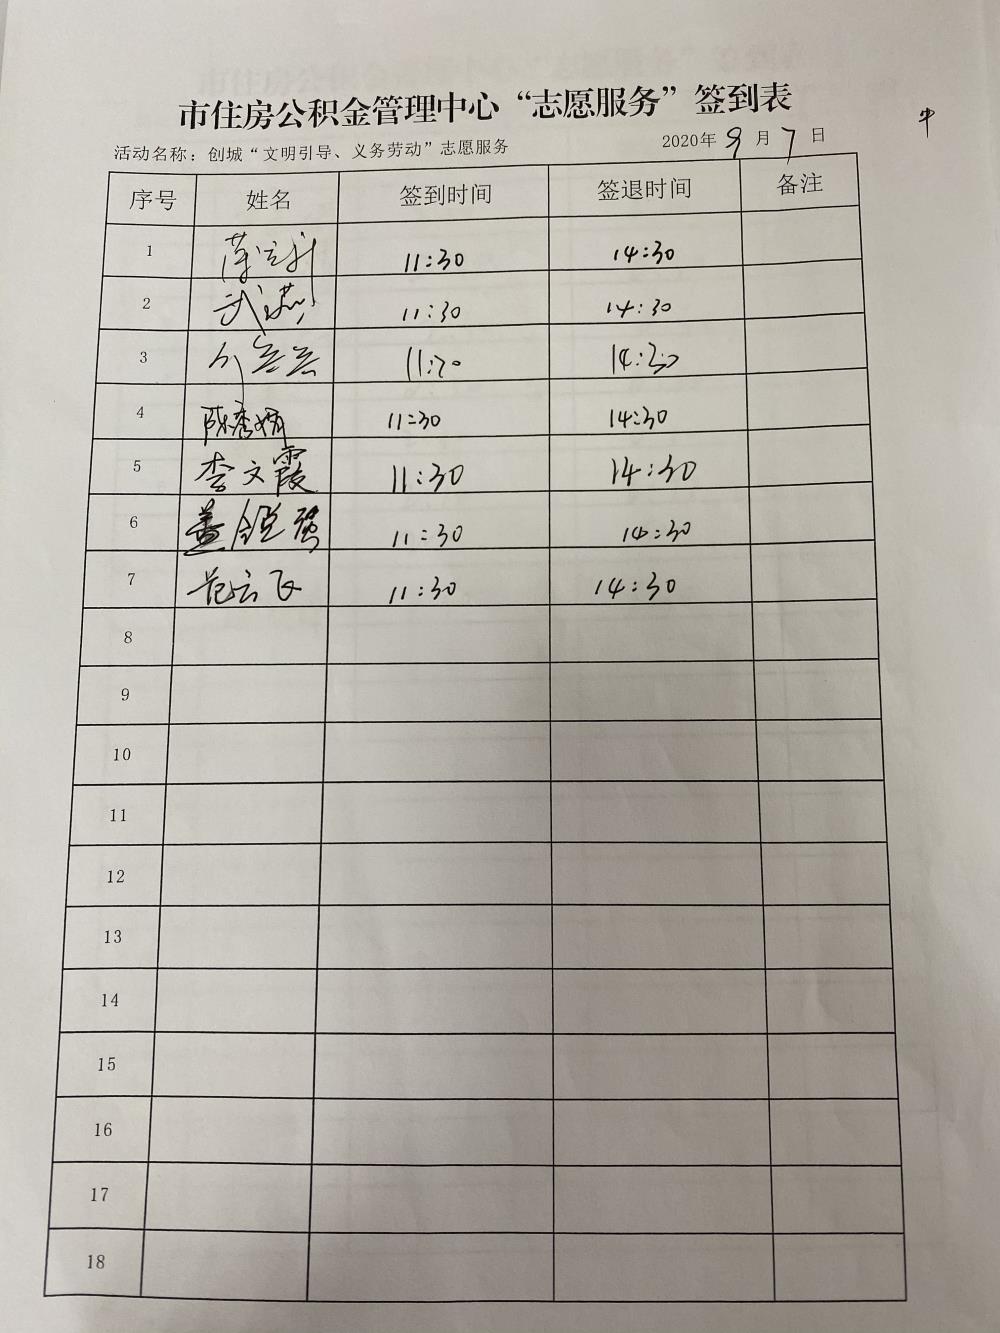 市住房公积金管理中心“志愿服务”签到表
中
活动名称：创城“文明引导、义务劳动”志愿服务 2020年 9 月 7 日
序号 姓名 签到时间 签退时间 备注
1 11:30 14:30
2 11:30 14:30
3 11:30 14:30
4 陈秀娟 11:30 14:30
5 李文霞 11:30 14:30
6 盖锐强 11:30 14:30
7 范云飞 11:30 14:30
8
9
10
11
12
13
14
15
16
17
18